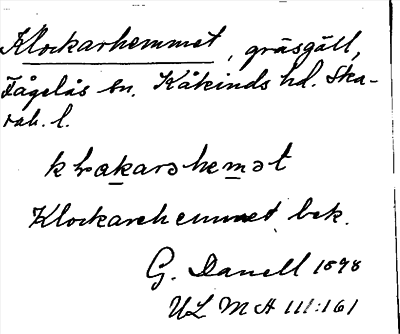 Klockarhemmet, gräsgäll,
Fågelås sn. Kåkinds hd. Ska-
rab. l.
klɷkarəhemət
Klockarehemmet, bek.
G. Danell 1898
ULMA 111:161